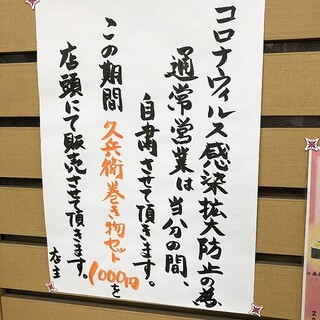 コロナウィルス感染拡大防止の為
通常営業は当分の間、
自粛させて頂きます。
この期間久兵衛巻き物セット1000円を
店頭にて販売させて頂きます。
店主